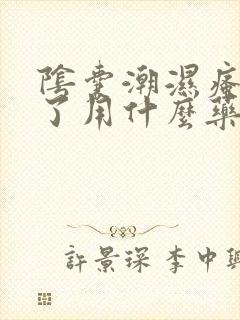 陰囊潮濕瘙
了用什麼藥
許景琛 李中興